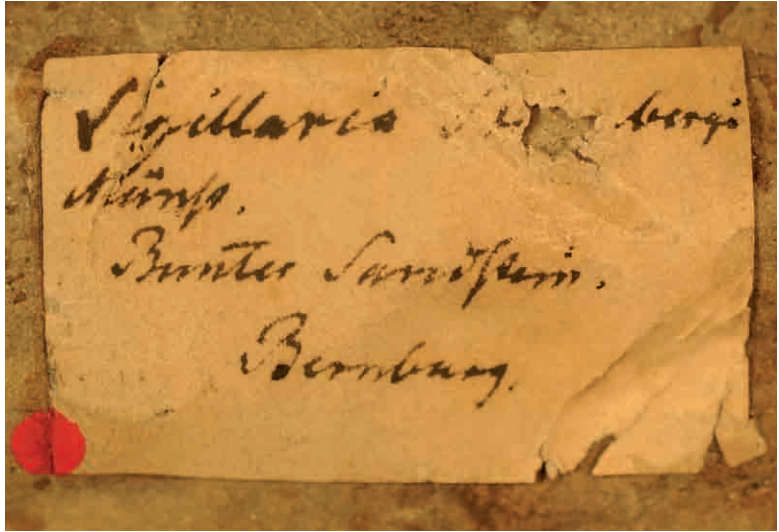 Sigillaria bergi
Münst.
Bunter Sandstein.
Bernburg.